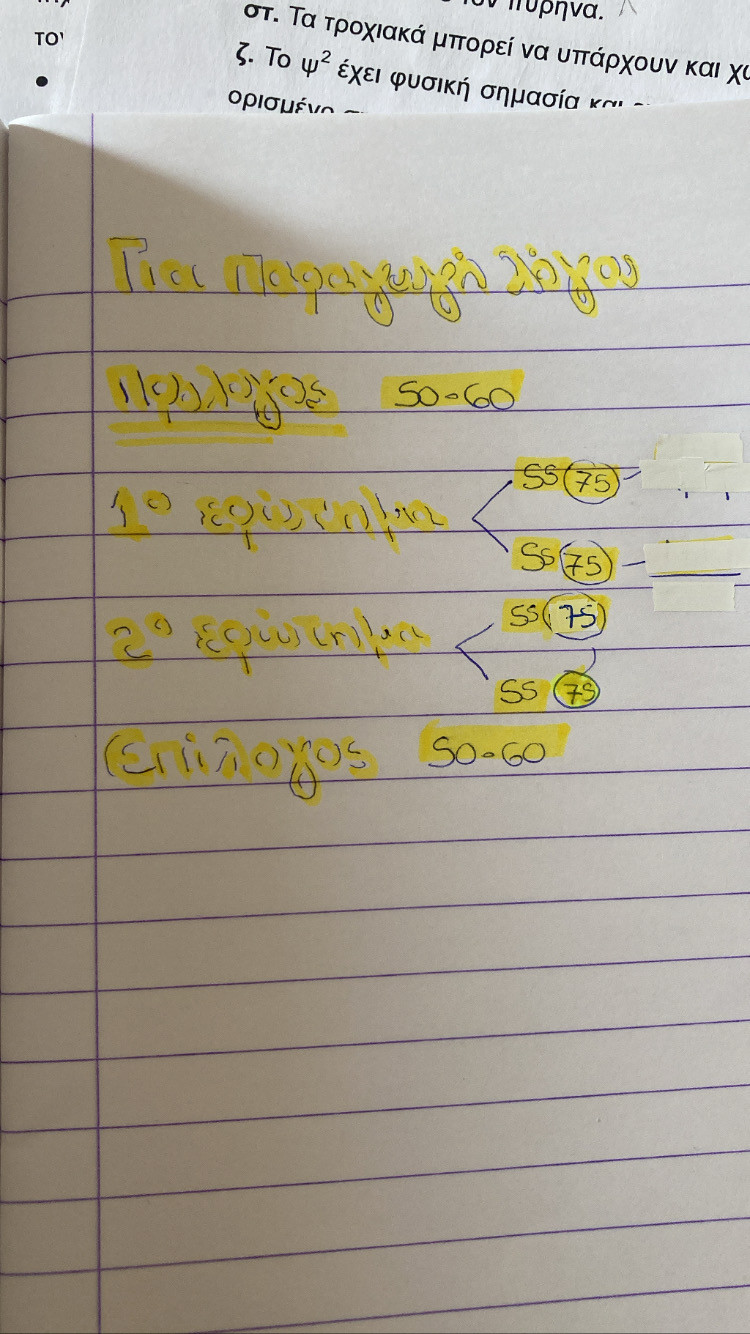 τον πυρήνα.
στ. Τα τροχιακά μπορεί να υπάρχουν και
ζ. Το ψ² έχει φυσική σημασία και
ορισμένο
Για παραγωγή λόγος
Πρόλογος 50-60
1ο ερώτημα
SS 75
SS 75
2ο ερώτημα
SS 75
SS 75
Επίλογος 50-60